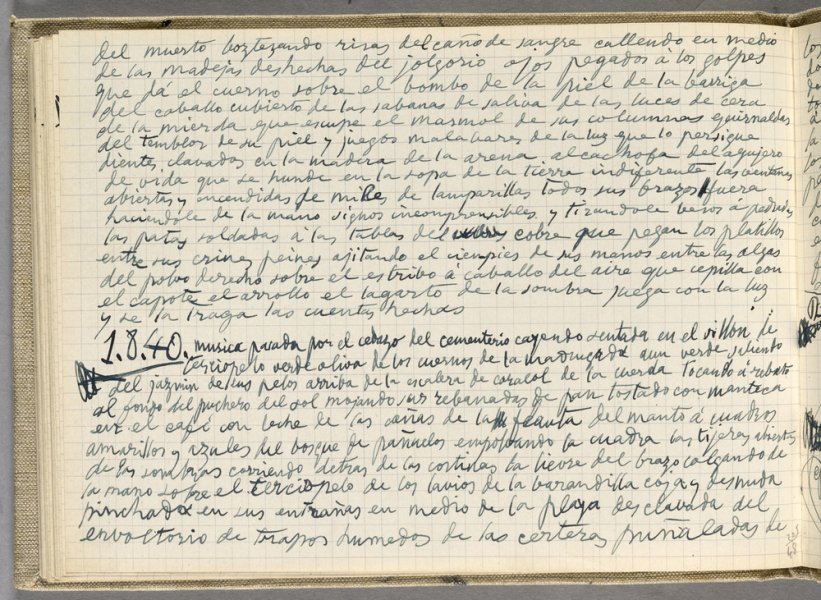 del muerto boztezando risas del caño de sangre callendo en medio
de las madejas deshechas del jolgorio ojos pegados à los golpes
que dá el cuerno sobre el bombo de la piel de la barriga
del caballo cubierto de las sabanas de saliva de las luces de cera
de la mierda que escupe el marmol de sus columnas guirnaldas
del temblor de su piel y juegos malabares de la luz que lo persigue
dientes clavados en la madera de la arena alcachofa del agujero
de vida que se hunde en la sopa de la tierra indiferente las ventanas
abiertas y encendidas de miles de lamparillas todos sus brazos fuera
haciendole de la mano signos incomprensibles y tirandole besos à pedradas
las patas soldadas à las tablas del cobre que pegan los platillos
entre sus crines peines ajitando el cienpies de sus manos entre las algas
del polvo derecho sobre el estribo à caballo del aire que cepilla con
el capote el arrollo el lagarto de la sombra juega con la luz
y se la traga las cuentas hechas
1.8.40. musica pasada por el cedazo del cementerio cayendo sentada en el sillon de
terciopelo verde oliva de los cuernos de la madrugada aun verde subiendo
del jazmin de sus pelos arriba de la escalera de caracol de la cuerda tocando à rebato
al fondo del puchero del sol mojando sus rebanadas de pan tostado con manteca
en el café con leche de las cañas de la flauta del manto à cuadros
amarillos y azules del bosque de pañuelos empolvando la cuadra las tijeras abiertas
de las corriendo detras de las cortinas la liebre del brazo colgando de
la mano sobre el terciopelo de los lavios de la barandilla coja y desnuda
pinchada en sus entrañas en medio de la playa desclavada del
envoltorio de trapos humedos de las certeras puñaladas de